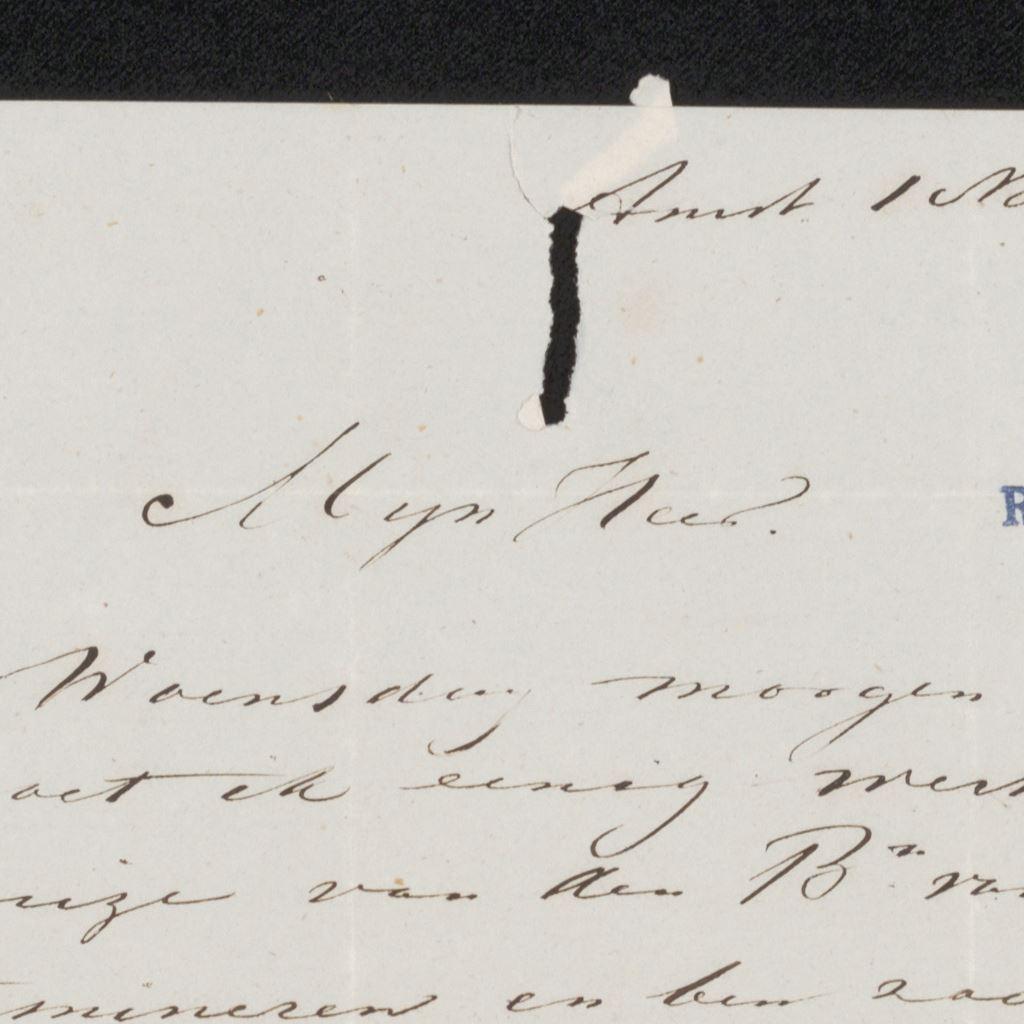 Amst 1 No
Mijn Heer.
R
Woensdag morgen
oet ik eenig werk
uize van den Bn va
mineren en ben